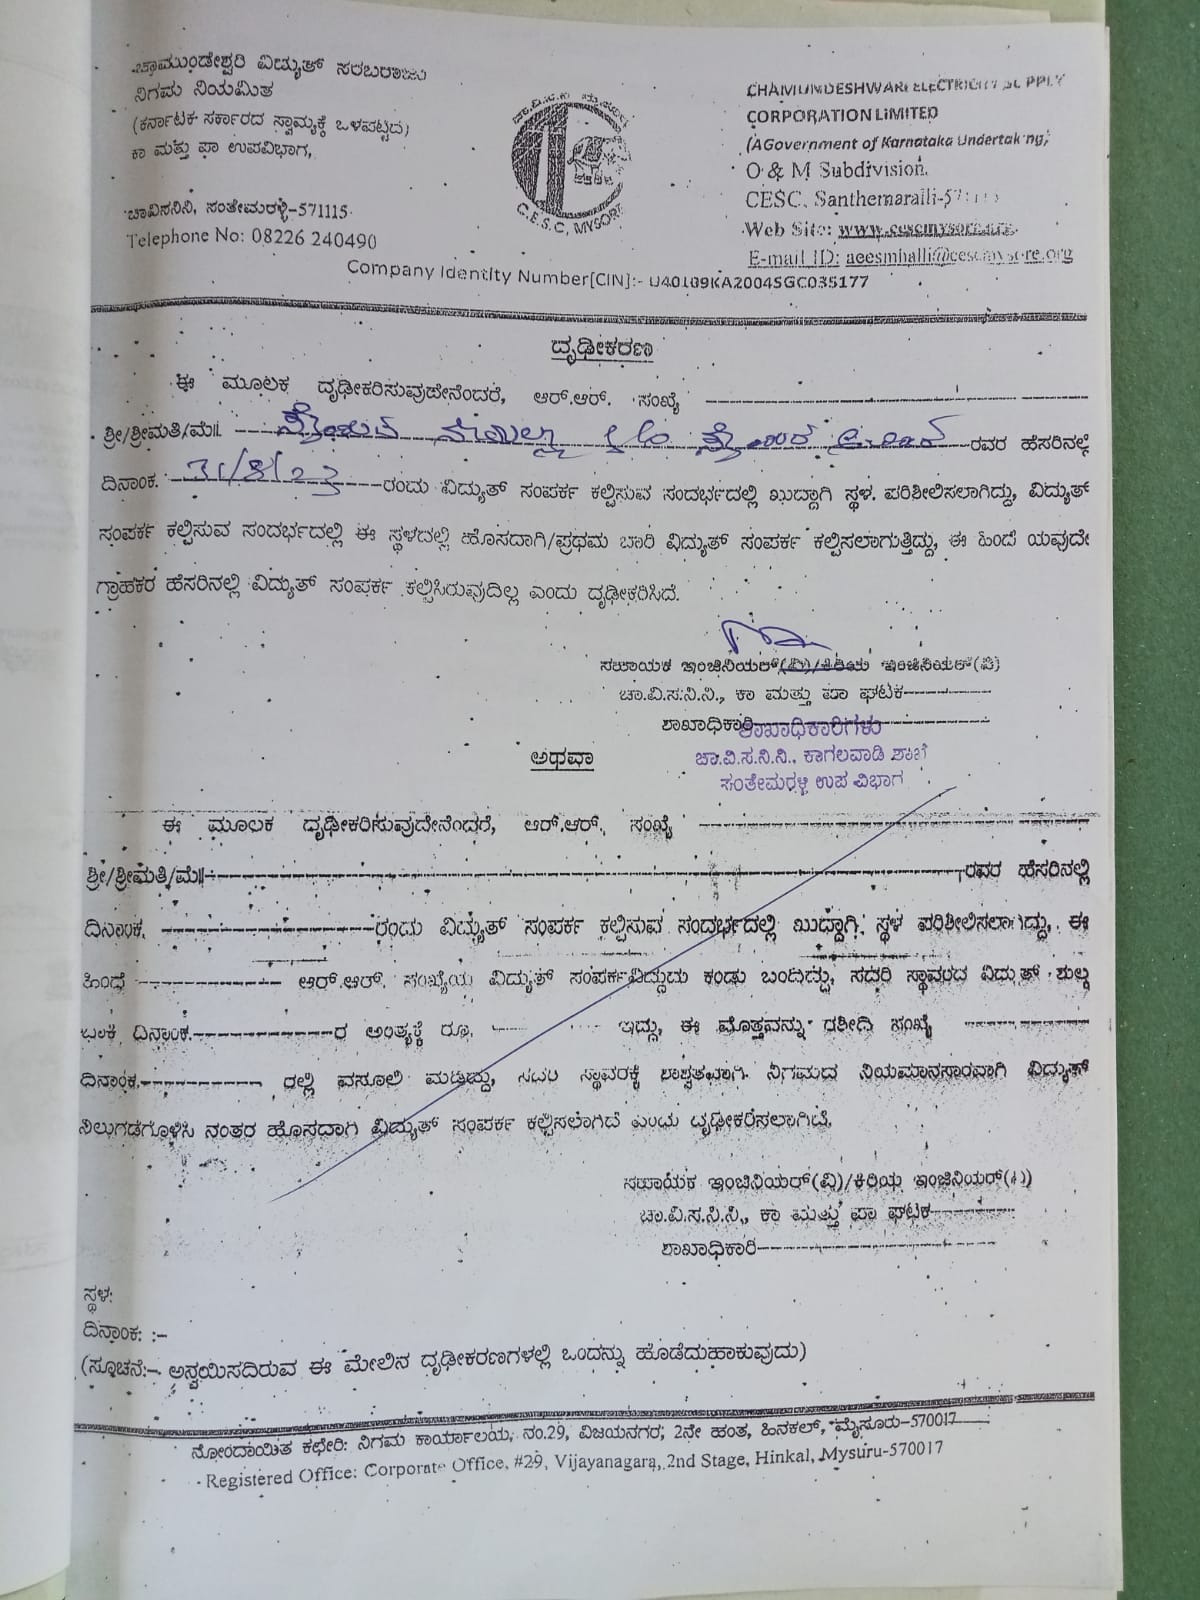 ಚಾಮುಂಡೇಶ್ವರಿ ವಿದ್ಯುತ್ ಸರಬರಾಜು
ನಿಗಮ ನಿಯಮಿತ
(ಕರ್ನಾಟಕ ಸರ್ಕಾರದ ಸ್ವಾಮ್ಯಕ್ಕೆ ಒಳಪಟ್ಟಿದೆ)
ಕಾ ಮತ್ತು ಪಾ ಉಪವಿಭಾಗ,
ಚಾವಿಸನಿನಿ, ಸಂತೇಮರಳ್ಳಿ-571115
Telephone No: 08226 240490
C.E.S.C, MYSORE
CHAMUNDESHWARI ELECTRICITY SUPPLY
CORPORATION LIMITED
(A Government of Karnataka Undertaking)
O & M Subdivision,
CESC, Santhemaralli-571115
Web Site: www.cescmysore.org
E-mail ID: aeesmhalli@cescmysore.org
Company Identity Number[CIN]:- U40109KA2004SGC035177
ದೃಢೀಕರಣ
ಈ ಮೂಲಕ ದೃಢೀಕರಿಸುವುದೇನೆಂದರೆ, ಆರ್.ಆರ್. ಸಂಖ್ಯೆ
ಶ್ರೀ/ಶ್ರೀಮತಿ/ಮೆ॥. ರವರ ಹೆಸರಿನಲ್ಲಿ
ದಿನಾಂಕ. 31/8/23 ರಂದು ವಿದ್ಯುತ್ ಸಂಪರ್ಕ ಕಲ್ಪಿಸುವ ಸಂದರ್ಭದಲ್ಲಿ ಖುದ್ದಾಗಿ ಸ್ಥಳ. ಪರಿಶೀಲಿಸಲಾಗಿದ್ದು, ವಿದ್ಯುತ್
ಸಂಪರ್ಕ ಕಲ್ಪಿಸುವ ಸಂದರ್ಭದಲ್ಲಿ ಈ ಸ್ಥಳದಲ್ಲಿ ಹೊಸದಾಗಿ/ಪ್ರಥಮ ಬಾರಿ ವಿದ್ಯುತ್ ಸಂಪರ್ಕ ಕಲ್ಪಿಸಲಾಗುತ್ತಿದ್ದು, ಈ ಹಿಂದೆ ಯವುದೇ
ಗ್ರಾಹಕರ ಹೆಸರಿನಲ್ಲಿ ವಿದ್ಯುತ್ ಸಂಪರ್ಕ ಕಲ್ಪಿಸಿರುವುದಿಲ್ಲ ಎಂದು ದೃಢೀಕರಿಸಿದೆ.
ಸಹಾಯಕ ಇಂಜಿನಿಯರ್(ವಿ)/ಕಿರಿಯ ಇಂಜಿನಿಯರ್(ವಿ)
ಚಾ.ವಿ.ಸ.ನಿ.ನಿ., ಕಾ ಮತ್ತು ಪಾ ಘಟಕ
ಶಾಖಾಧಿಕಾರಿ
ಶಾಖಾಧಿಕಾರಿಗಳು
ಚಾ.ವಿ.ಸ.ನಿ.ನಿ., ಕಾಗಲವಾಡಿ ಶಾಖೆ
ಸಂತೇಮರಳ್ಳಿ ಉಪ ವಿಭಾಗ
ಅಥವಾ
ಈ ಮೂಲಕ ದೃಢೀಕರಿಸುವುದೇನೆಂದರೆ, ಆರ್.ಆರ್. ಸಂಖ್ಯೆ
ಶ್ರೀ/ಶ್ರೀಮತಿ/ಮೆ॥ ರವರ ಹೆಸರಿನಲ್ಲಿ
ದಿನಾಂಕ. ರಂದು ವಿದ್ಯುತ್ ಸಂಪರ್ಕ ಕಲ್ಪಿಸುವ ಸಂದರ್ಭದಲ್ಲಿ ಖುದ್ದಾಗಿ ಸ್ಥಳ ಪರಿಶೀಲಿಸಲಾಗಿದ್ದು, ಈ
ಹಿಂದೆ ಆರ್.ಆರ್. ಸಂಖ್ಯೆಯ ವಿದ್ಯುತ್ ಸಂಪರ್ಕವಿದ್ದುದು ಕಂಡು ಬಂದಿದ್ದು, ಸದರಿ ಸ್ಥಾವರದ ವಿದ್ಯುತ್ ಶುಲ್ಕ
ಬಾಕಿ ದಿನಾಂಕ. ರ ಅಂತ್ಯಕ್ಕೆ ರೂ. ಇದ್ದು, ಈ ಮೊತ್ತವನ್ನು ರಶೀದಿ ಸಂಖ್ಯೆ
ದಿನಾಂಕ. ರಲ್ಲಿ ವಸೂಲಿ ಮಾಡಿದ್ದು, ಸದರಿ ಸ್ಥಾವರಕ್ಕೆ ಶಾಶ್ವತವಾಗಿ ನಿಗಮದ ನಿಯಮಾನಸಾರವಾಗಿ ವಿದ್ಯುತ್
ನಿಲುಗಡೆಗೊಳಿಸಿ ನಂತರ ಹೊಸದಾಗಿ ವಿದ್ಯುತ್ ಸಂಪರ್ಕ ಕಲ್ಪಿಸಲಾಗಿದೆ ಎಂದು ದೃಢೀಕರಿಸಲಾಗಿದೆ.
ಸಹಾಯಕ ಇಂಜಿನಿಯರ್(ವಿ)/ಕಿರಿಯ ಇಂಜಿನಿಯರ್(ವಿ)
ಚಾ.ವಿ.ಸ.ನಿ.ನಿ., ಕಾ ಮತ್ತು ಪಾ ಘಟಕ
ಶಾಖಾಧಿಕಾರಿ
ಸ್ಥಳ:
ದಿನಾಂಕ: :-
(ಸೂಚನೆ:- ಅನ್ವಯಿಸದಿರುವ ಈ ಮೇಲಿನ ದೃಢೀಕರಣಗಳಲ್ಲಿ ಒಂದನ್ನು ಹೊಡೆದುಹಾಕುವುದು)
ನೋಂದಾಯಿತ ಕಛೇರಿ: ನಿಗಮ ಕಾರ್ಯಾಲಯ, ನಂ.29, ವಿಜಯನಗರ, 2ನೇ ಹಂತ, ಹಿನಕಲ್, ಮೈಸೂರು-570017
Registered Office: Corporate Office, #29, Vijayanagara, 2nd Stage, Hinkal, Mysuru-570017